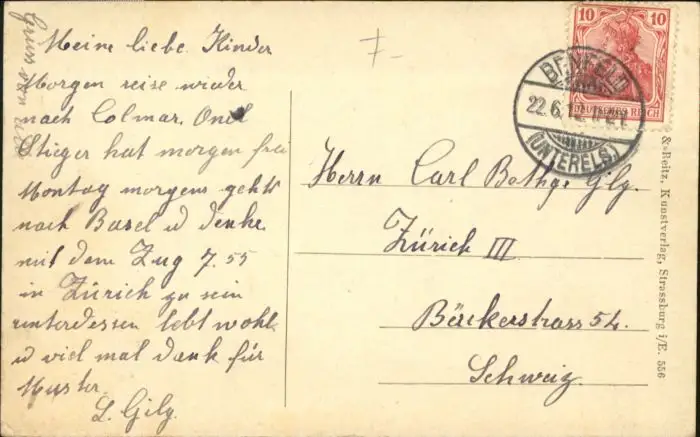 Meine liebe Kinder
Morgen reise wieder
nach Colmar. Onel
Stieger hat morgen frei
Montag morgens geht's
nach Basel u denke
mit dem Zug 7.55
in Zürich zu sein
unterdessen lebt wohl
u viel mal dank für
Muster.
L. Gilg.
10 10
DEUTSCHES REICH
BENFELD
22.6.
(UNTERELS.)
Herrn Carl Bothge Gilg.
Zürich III
Bäckerstrass 54.
Schweiz
& Beitz, Kunstverlag, Strassburg i/E. 556